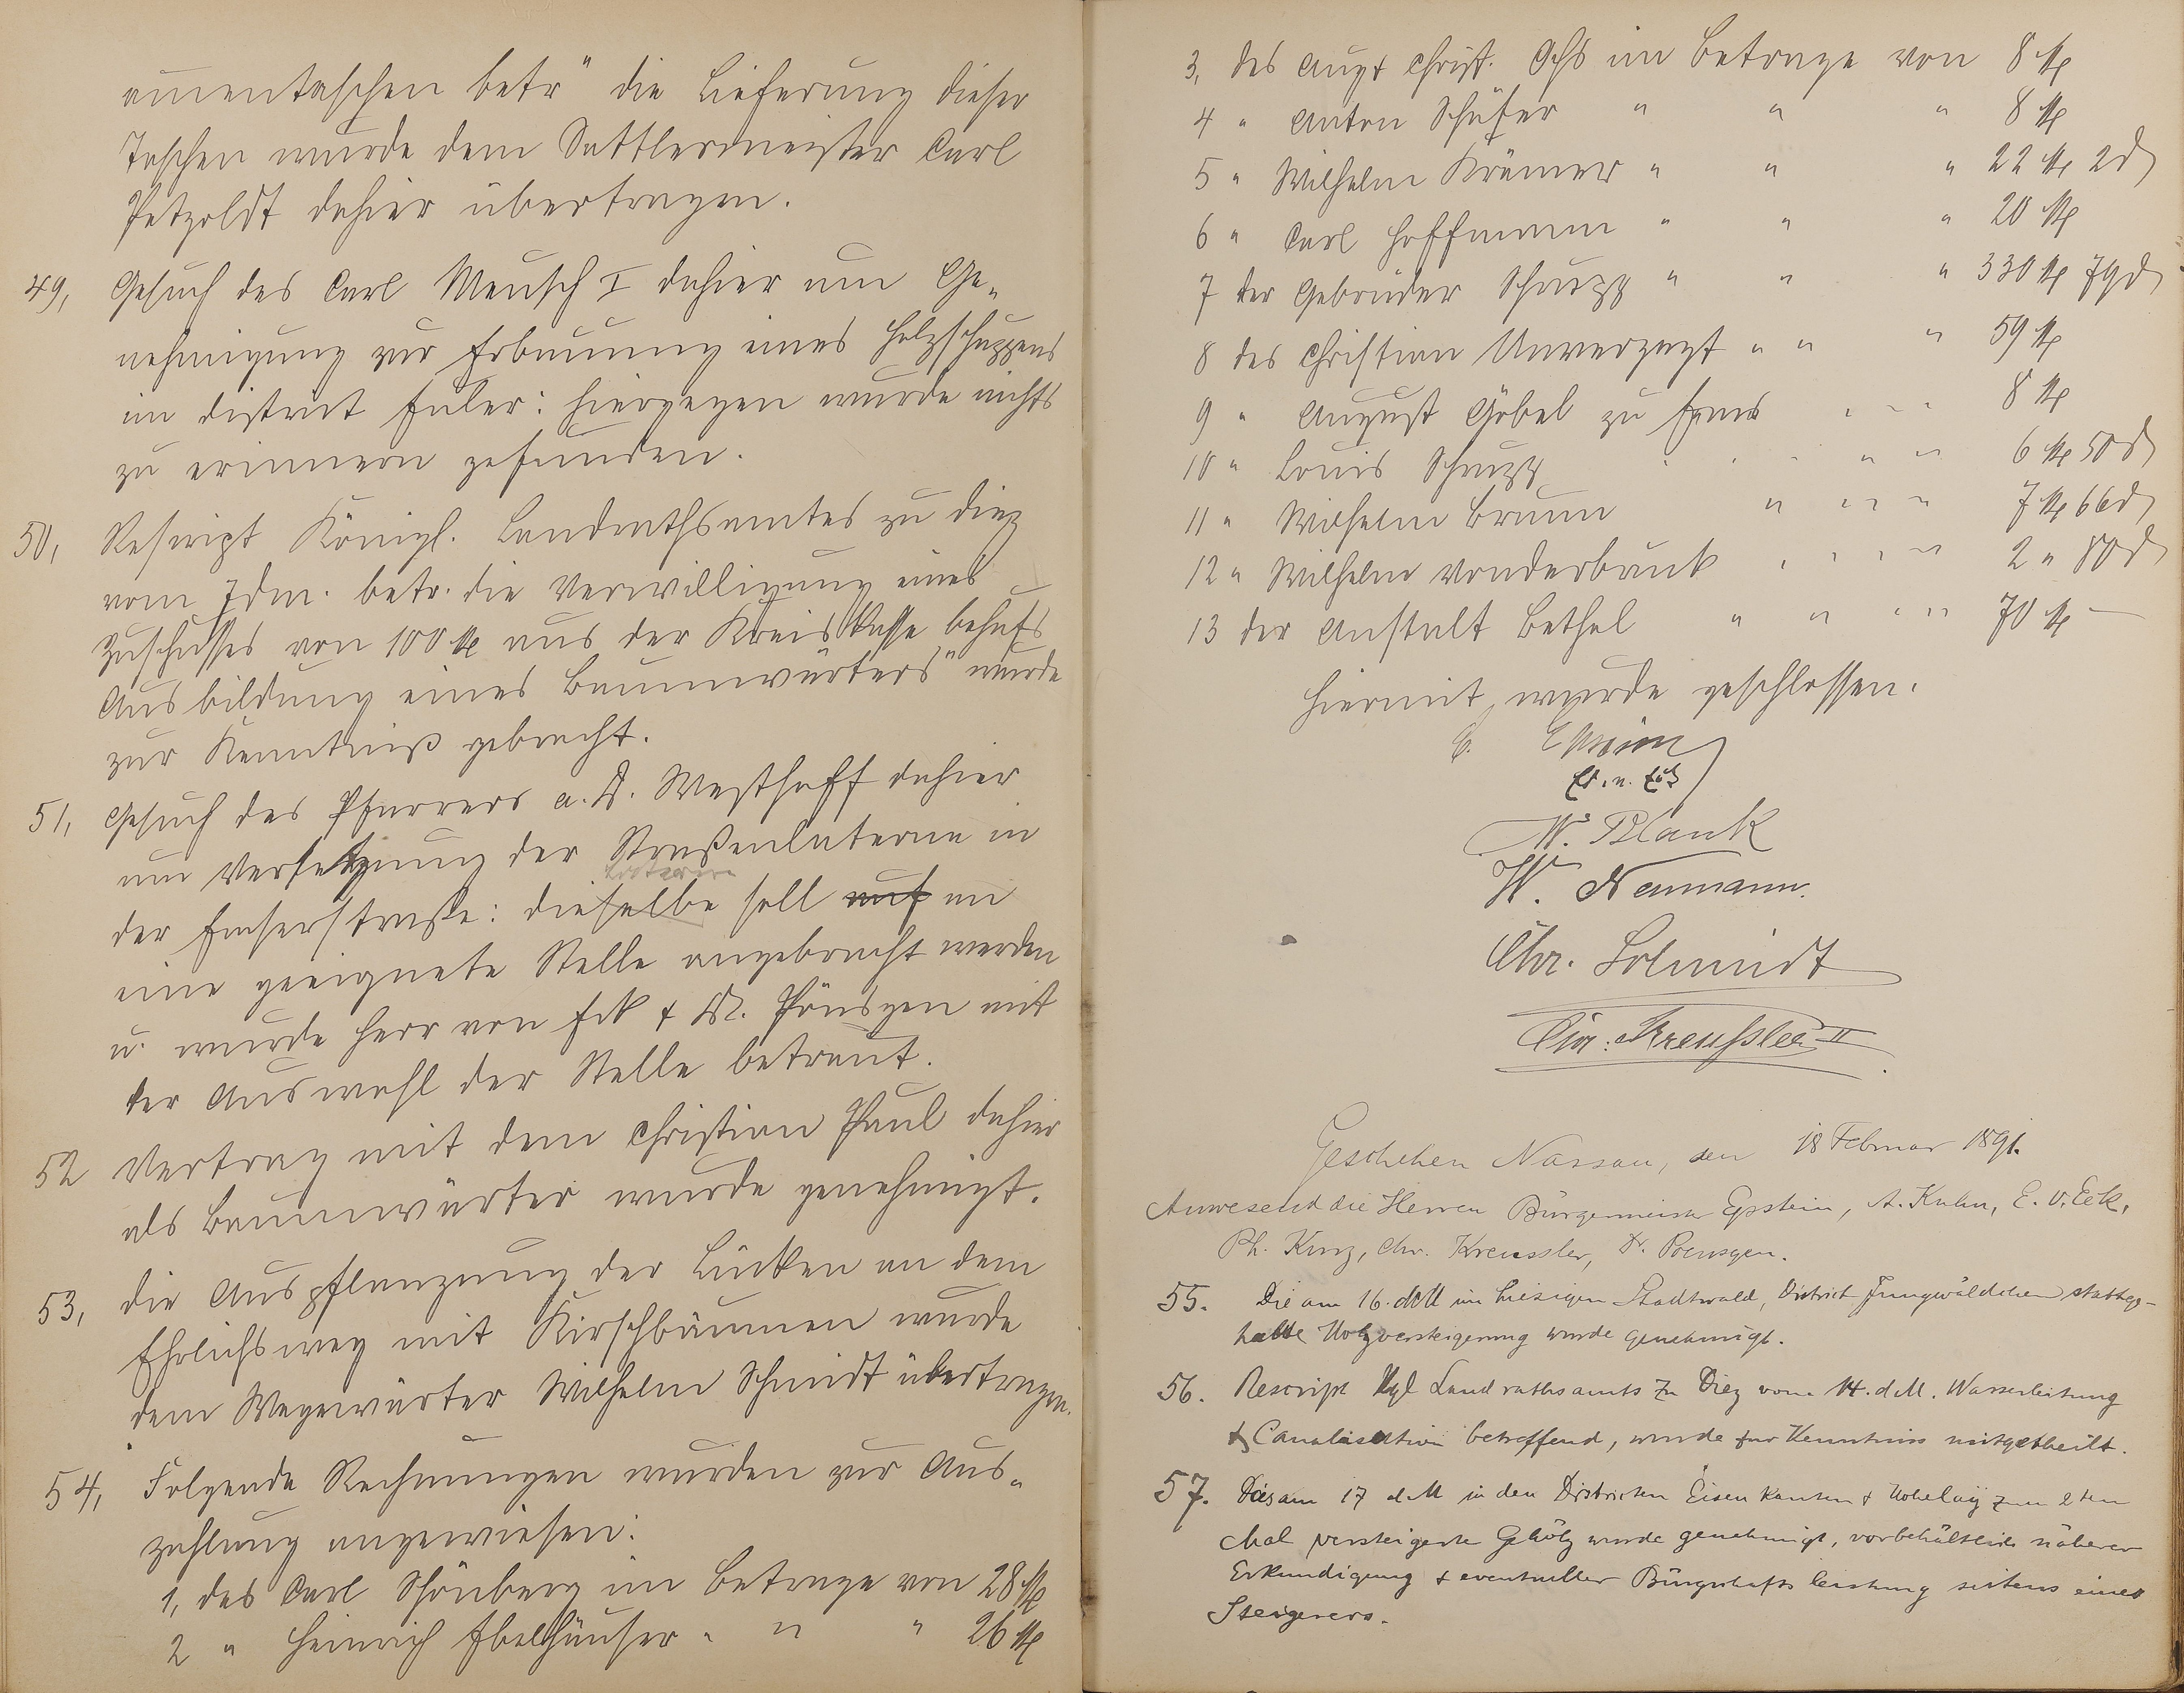 amentaschen betr" die Lieferung dieser
Taschen wurde dem Sattlermeister Carl
Petzoldt dahier übertragen.
49, Gesuch des Carl Meusch I dahier um Ge„
nehmigung zur Erbauung eines Holzschuppens
im District Euler: hiergegen wurde nichts
zu erinnern gefunden.
50, Rescript Königl. Landrathsamtes zu Diez
vom 7 dm. betr. die Verwilligung eines
Zuschusses von 100 M aus der Kreiskasse behufs
Ausbildung eines Baumwärters" wurde
zur Kenntniß gebracht.
51, Gesuch des Pfarrers a. D. Westhoff dahier
um Versetzung der Straßenlaterne in
der Emserstraße: dieselbe soll auf an
eine geeignete Stelle angebracht werden
u. wurde Herr von Eck & Dr. Pönsgen mit
der Auswahl der Stelle betraut.
52 Vertrag mit dem Christian Paul dahier
als Baumwärter wurde genehmigt.
53, Die Auspflanzung der Lücken an dem
Ehrlichsweg mit Kirschbäumen wurde
dem Wegewärter Wilhelm Schmidt übertragen.
54, Folgende Rechnungen wurden zur Aus„
zahlung angewiesen:
1, des Carl Schönberg im Betrage von 28 M
2 " Heinrich Ebelhäuser " " " 26 M
3, des Aug & Christ. Ochs im Betrage von 8 M
4 " Anton Schäfer " " " 8 M
5 " Wilhelm Krämer " " " 22 M 2 d
6 " Carl Hoffmann " " " 20 M
7 der Gebrüder Schrupp " " " 330 M 79 d
8 des Christian Unverzagt " " " 59 M
9 " August Göbel zu Ems " " " 8 M
10 " Louis Schrupp " " " " " 6 M 50 d
11 " Wilhelm Braun " " " " 7 M 66 d
12 " Wilhelm Vonderbank " " " " 2 " 80 d
13 der Anstalt Bethel " " " " 70 M —
Hiermit wurde geschlossen.
W. Blank
W. Neumann.
Chr. Schmidt
Chr. Kreußler II
Geschehen Nassau, den 18 Februar 1891.
Anwesend die Herren Bürgermeister Epstein, A. Kuhn, E. v. Eck,
Ph. Kurz, Chr. Kreussler, Dr. Poensgen.
55. Die am 16. d M im hiesigen Stadtwald, District Jungwäldchen stattge-
habte Holzversteigerung wurde genehmigt.
56. Rescript Kgl Landrathsamts zu Diez vom 14. d. M. Wasserleitung
& Canalisation betreffend, wurde zur Kenntniss mitgetheilt.
57. Das am 17 d. M in den Districten Eisenkanten & Hohelay zum 2ten
Mal versteigerte Gehölz wurde genehmigt, vorbehältlich näherer
Erkundigung & eventueller Bürgschaftsleistung seitens eines
Steigerers.